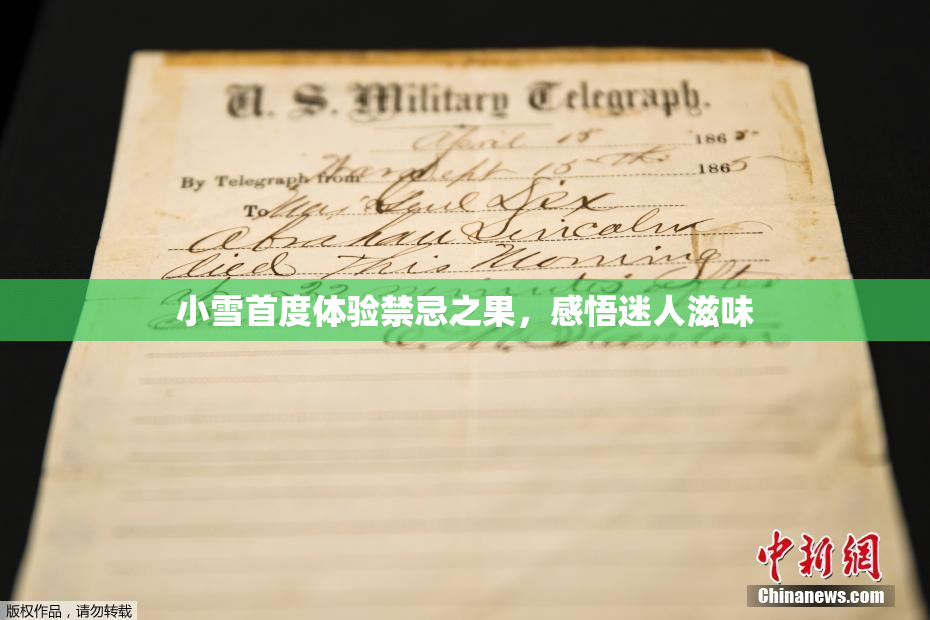 U. S. Military Telegraph.
April 15 1865
By Telegraph from War Dept 15th 1865
To Maj Genl Dix
Abraham Lincoln
died This Morning
22 minutes after
小雪首度体验禁忌之果，感悟迷人滋味
E. M. Stanton
中新网
Chinanews.com
版权作品，请勿转载